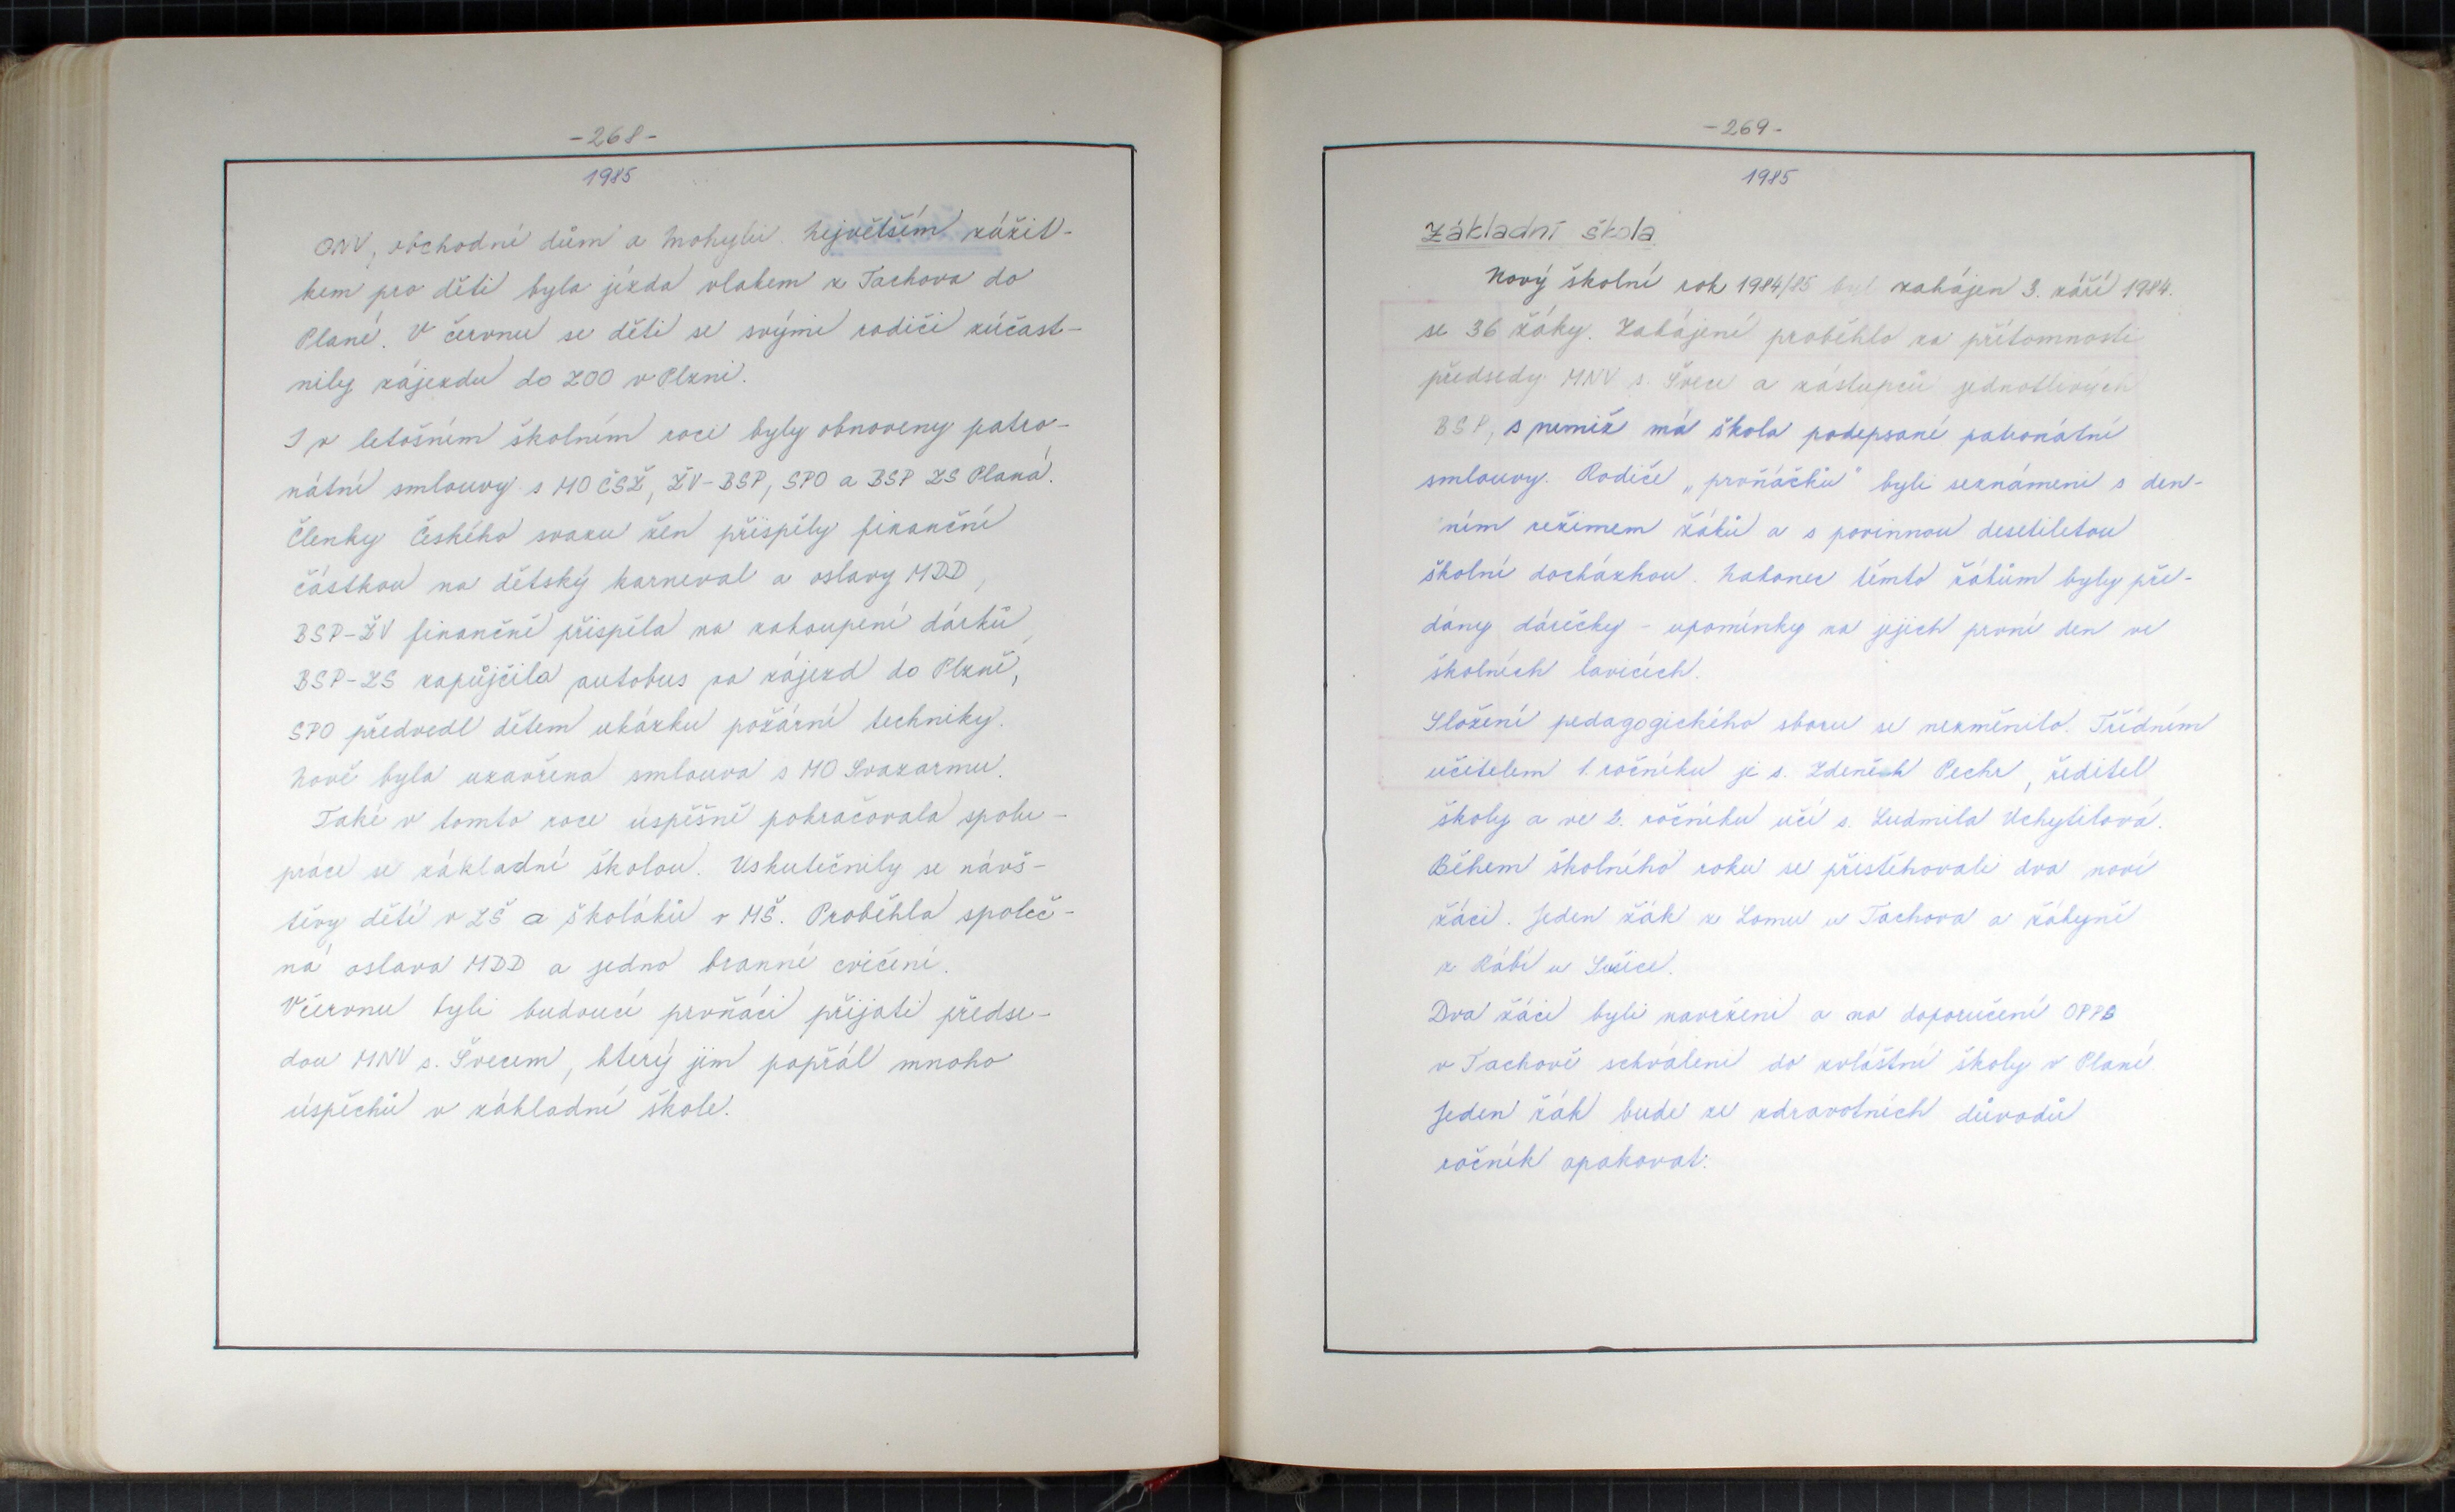 -268-
1985
ONV, obchodní dům a Mohylu. Největším zážit-
kem pro děti byla jízda vlakem z Tachova do
Plané. V červnu se děti se svými rodiči zúčast-
nily zájezdu do ZOO v Plzni.
I v letošním školním roce byly obnoveny patro-
nátní smlouvy s MO ČSŽ, ŽV-BSP, SPO a BSP ZS Planá.
Členky Českého svazu žen přispěly finanční
částkou na dětský karneval a oslavy MDD,
BSP-ŽV finančně přispěla na zakoupení dárků,
BSP-ZS zapůjčila autobus na zájezd do Plzně,
SPO předvedl dětem ukázku požární techniky.
Nově byla uzavřena smlouva s MO Svazarmu.
Také v tomto roce úspěšně pokračovala spolu-
práce se základní školou. Uskutečnily se návš-
těvy dětí v ZŠ a školáků v MŠ. Proběhla společ-
ná oslava MDD a jedno branné cvičení.
V červnu byli budoucí prvňáci přijati předse-
dou MNV s. Švecem, který jim popřál mnoho
úspěchů v základní škole.
-269-
1985
Základní škola
Nový školní rok 1984/85 byl zahájen 3. září 1984.
se 36 žáky. Zahájení proběhlo za přítomnosti
předsedy MNV s. Švece a zástupců jednotlivých
BSP, s nimiž má škola podepsané patronátní
smlouvy. Rodiče „prvňáčků" byli seznámeni s den-
ním režimem žáků a s povinnou desetiletou
školní docházkou. Nakonec těmto žákům byly pře-
dány dárečky - upomínky na jejich první den ve
školních lavicích.
Složení pedagogického sboru se nezměnilo. Třídním
učitelem 1. ročníku je s. Zdeněk Pechr, ředitel
školy a ve 2. ročníku učí s. Ludmila Vchytilová.
Během školního roku se přistěhovali dva noví
žáci. Jeden žák z Lomu u Tachova a žákyně
z Rábí u Sušice.
Dva žáci byli navrženi a na doporučení OPPB
v Tachově schváleni do zvláštní školy v Plané
Jeden žák bude ze zdravotních důvodů
ročník opakovat.